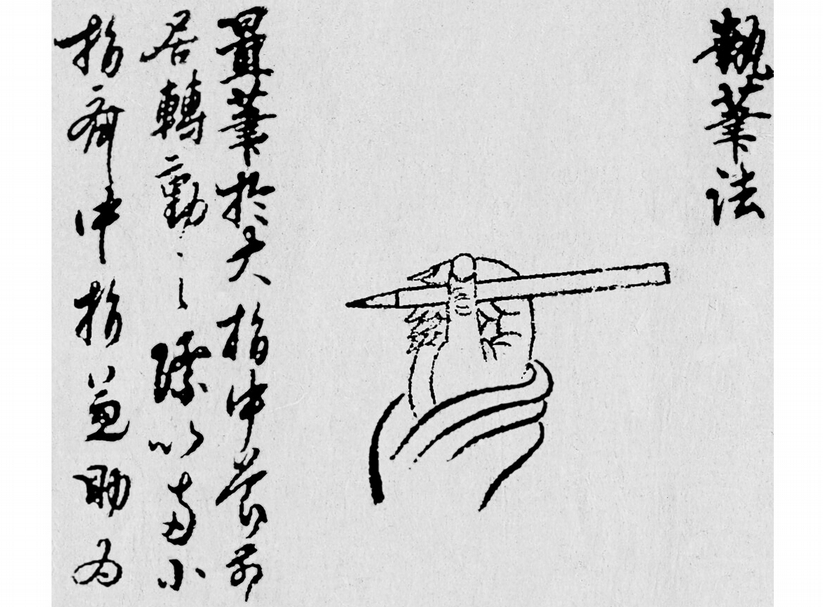 執筆法
置筆於大指中節前
居轉動之際以頭
指齊中指兼助為